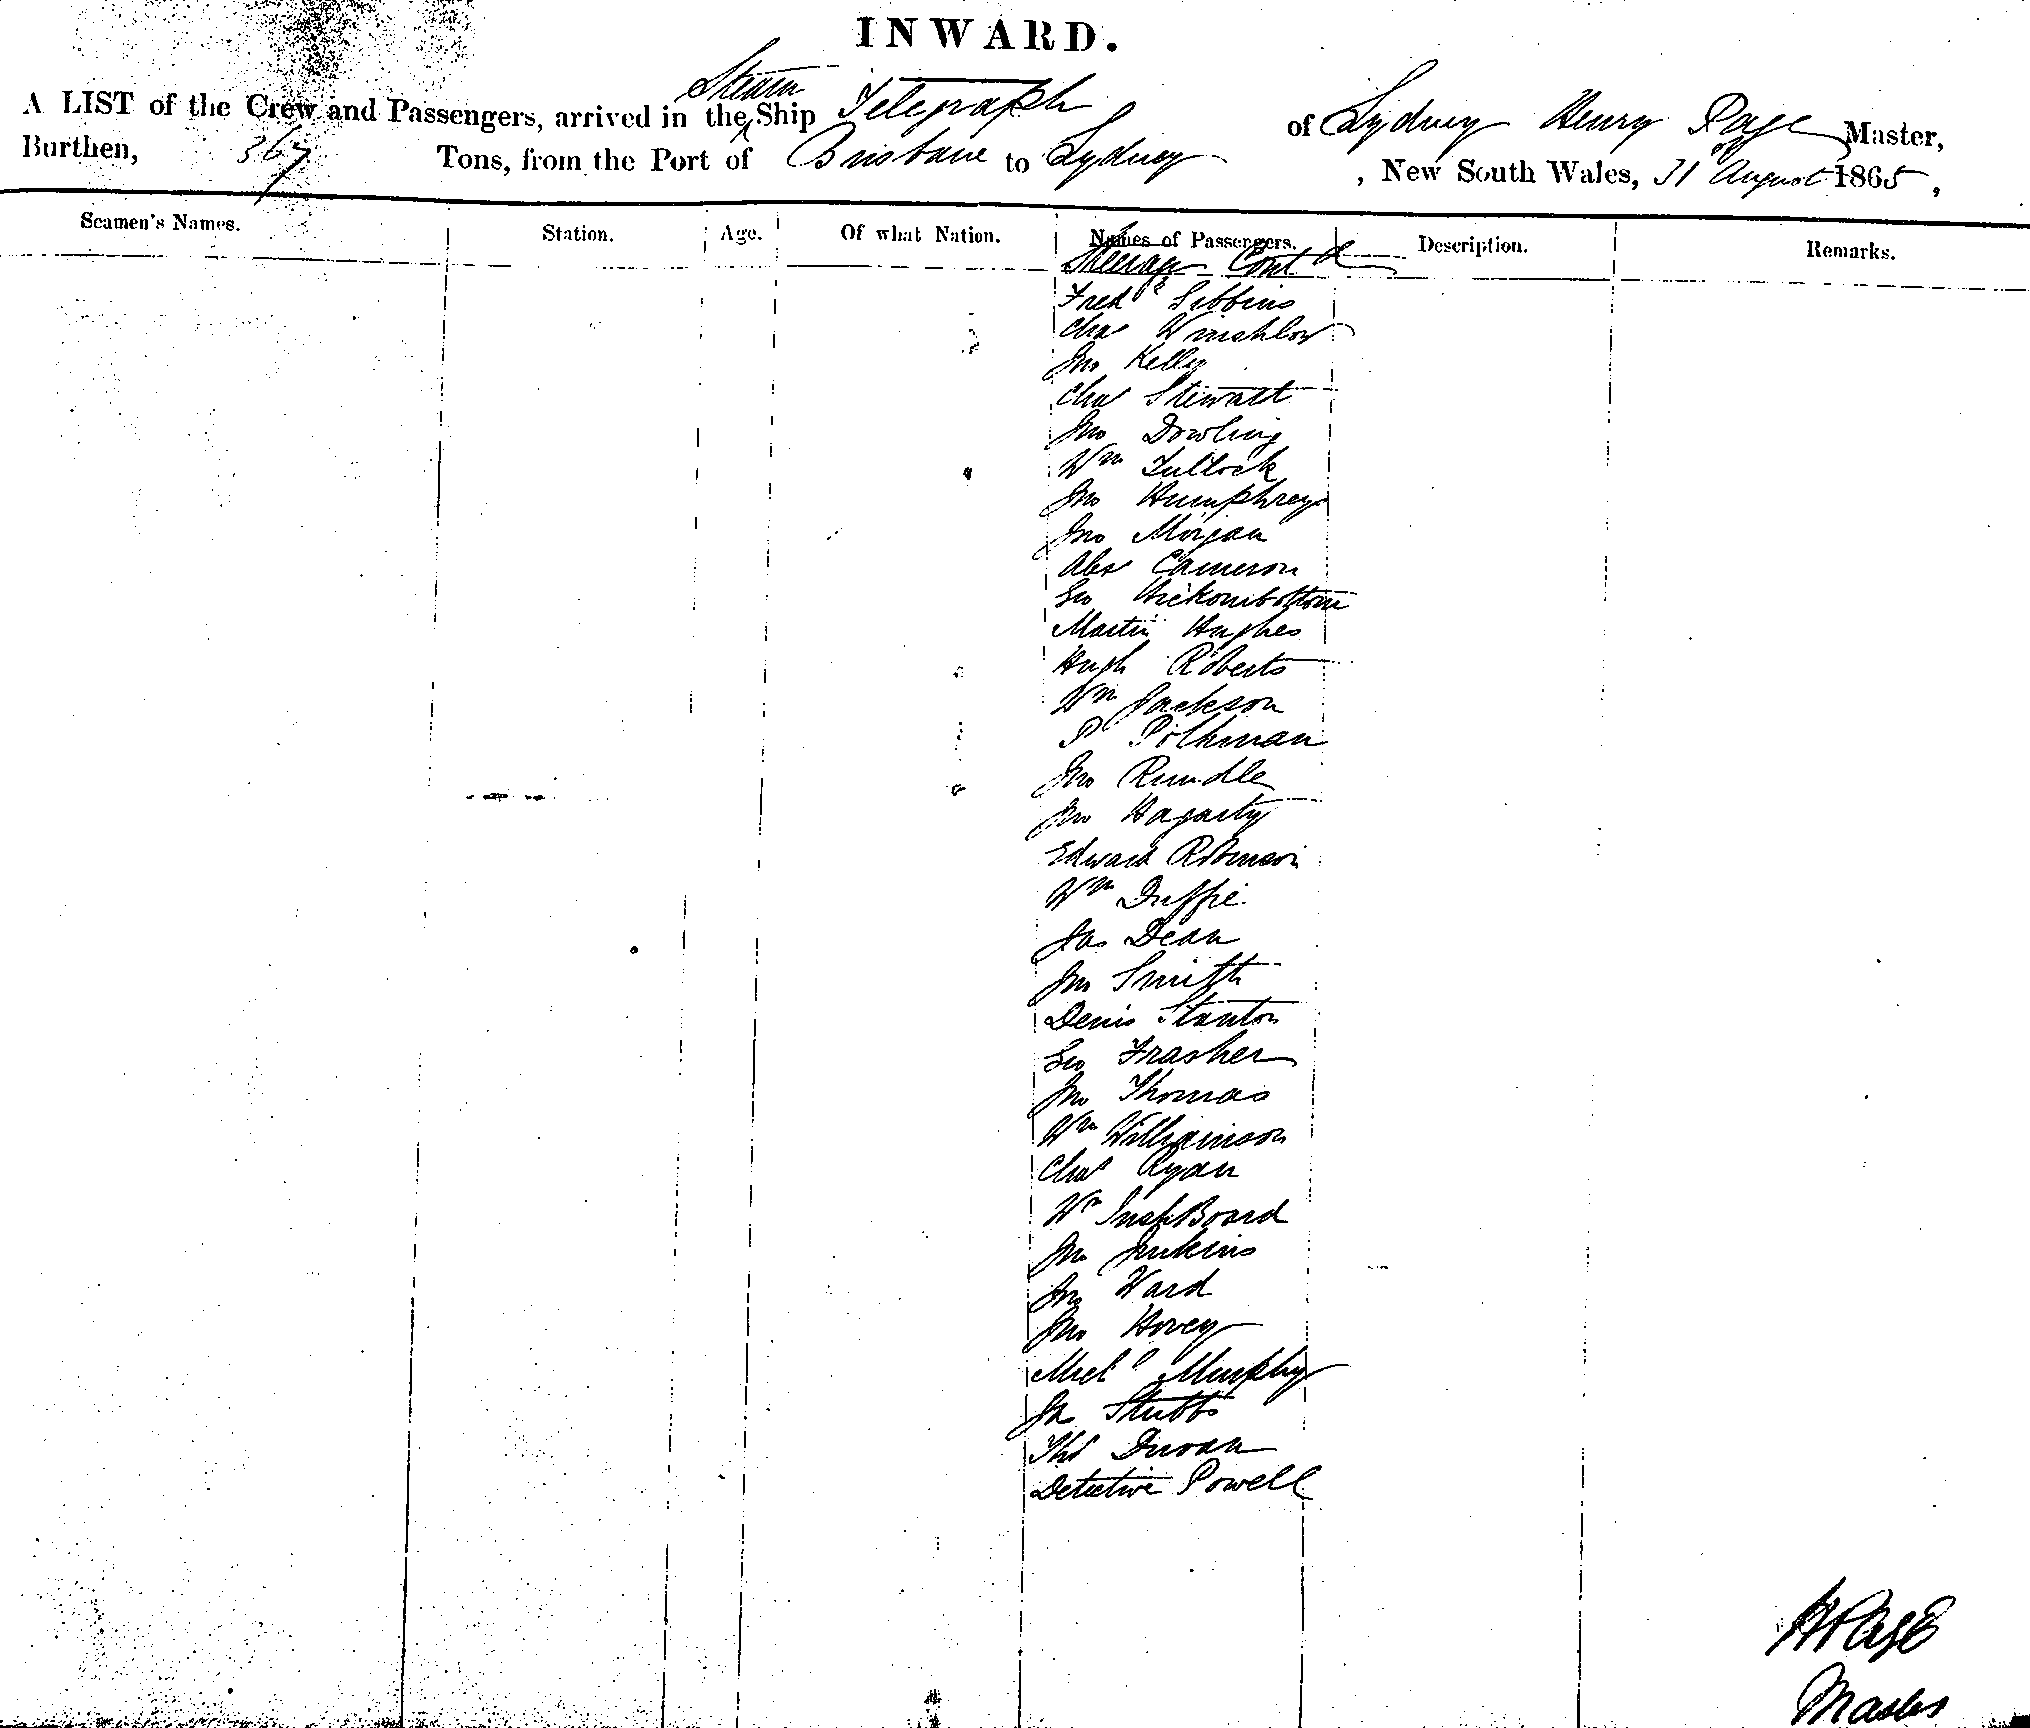 INWARD.
Steam
A LIST of the Crew and Passengers, arrived in the ^ Ship Telegraph of Sydney Henry Page Master,
Burthen, 367 Tons, from the Port of Brisbane to Sydney , New South Wales, 31 August 1865,
Seamen's Names. Station. Age. Of what Nation. Names of Passengers. Description. Remarks.
Steerage Contd
Fredc Gibbins
Chas Winshlow
Jno Kelly
Chas Stewart
Jno Dowling
Wm Tullock
Jno Humphreys
Jno Morgan
Alex Cameron
Geo Hickombottom
Martin Hughes
Hugh Roberts
Wm Jackson
P Polhman
Jno Rundle
Jno Hagarty
Edward Robinson
Wm Duffie
Jas Dean
Jno Smith
Denis Stanton
Geo Frasher
Jno Thomas
Wm Williamson
Chas Ryan
Wm
Jno Jenkins
Jno Ward
Jno Hovey
Michl Murphy
Jas Stubbs
Thos
Detective Powell
H Page
Master